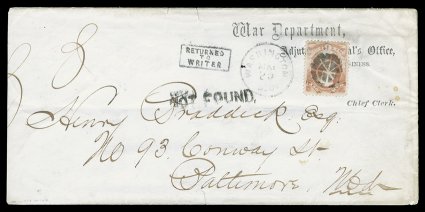 War Department,
Adjut al's Office,
RETURNED
TO
WRITER
NOT FOUND.
Chief Clerk.
Henry Braddick Esq.
No 93. Conway St.
Baltimore, Md.